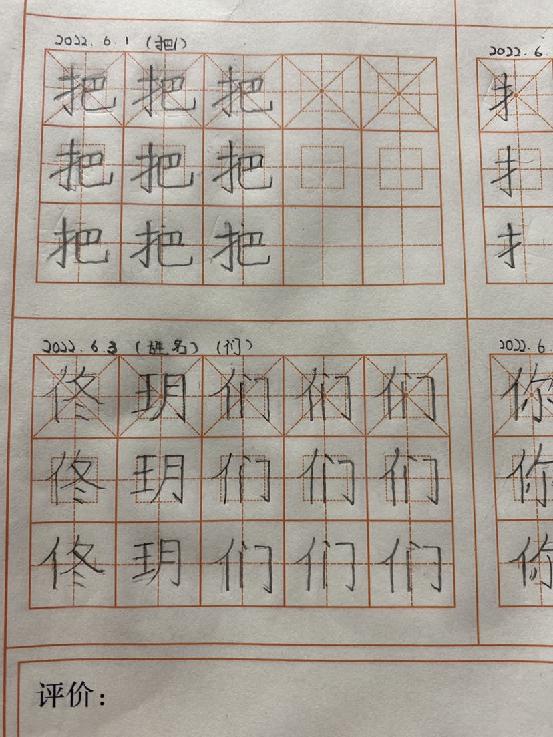 2022.6.1（把） 2022.6.
把 把 把 扌
把 把 把 扌
把 把 把 扌
2022.6 3（姓名）（们） 2022.6.
佟 玥 们 们 们 你
佟 玥 们 们 们 你
佟 玥 们 们 们 你
评价：